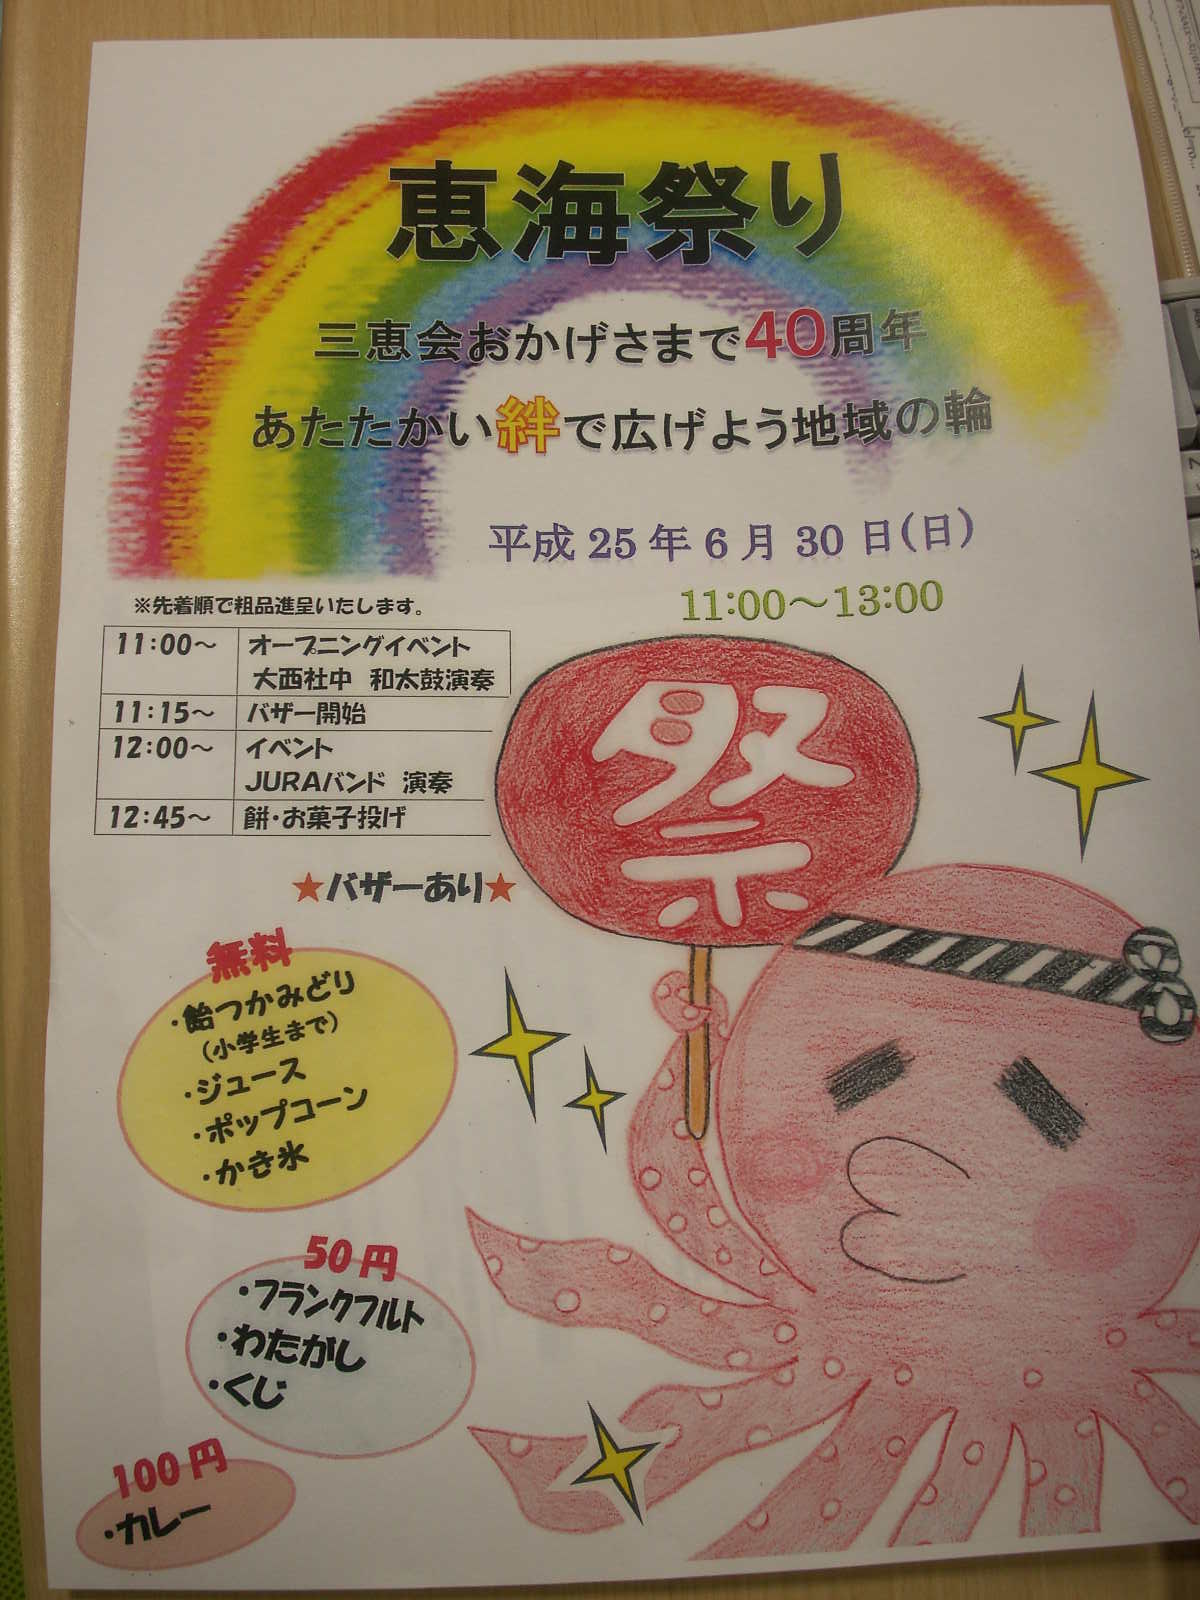 恵海祭り
三恵会おかげさまで40周年
あたたかい絆で広げよう地域の輪
平成25年6月30日(日)
11:00～13:00
※先着順で粗品進呈いたします。
11:00～ オープニングイベント
大西社中 和太鼓演奏
11:15～ バザー開始
12:00～ イベント
JURAバンド 演奏
12:45～ 餅・お菓子投げ
祭
★バザーあり★
無料
・飴つかみどり
(小学生まで)
・ジュース
・ポップコーン
・かき氷
50円
・フランクフルト
・わたがし
・くじ
100円
・カレー